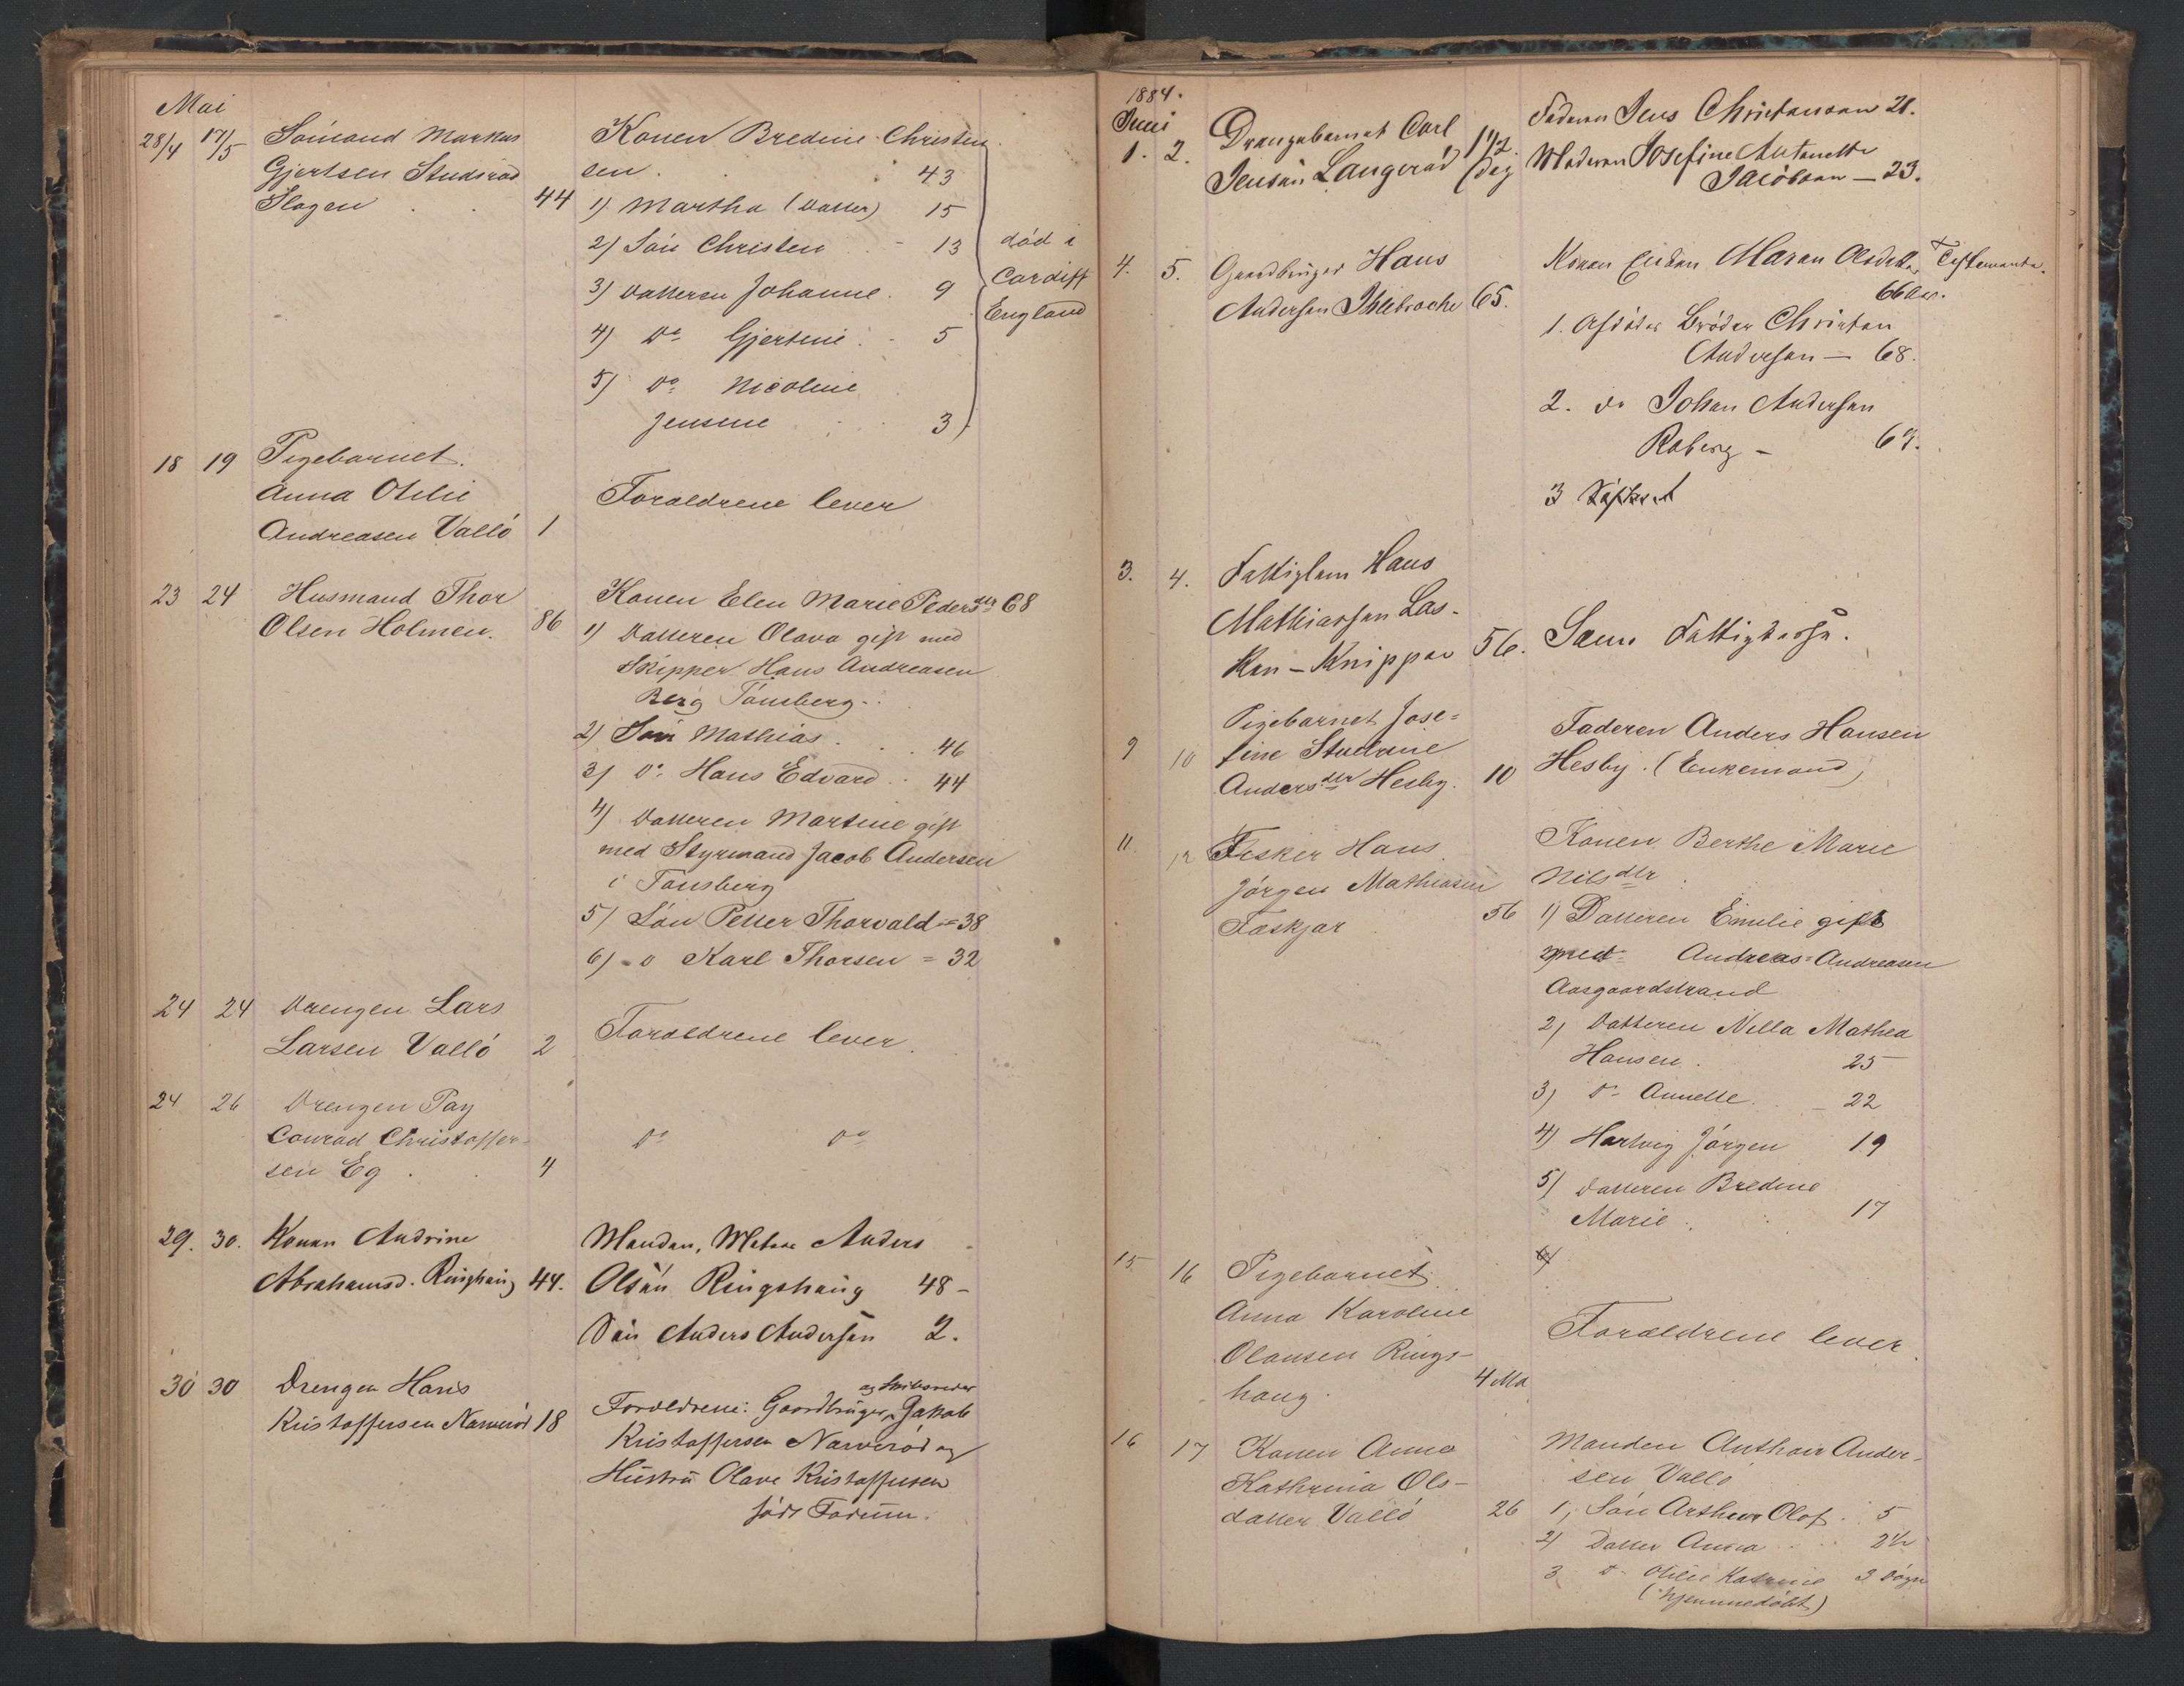 Mai
28/4 17/5 Sømand Markus
Gjertsen Studsrød
Slagen 44
Konen Bredine Christen
sen 43
1) Martha (Datter) 15
2) Søn Christen - 13
3) Datteren Johanne 9
4) Do Gjertine - 5
5) Do Nicoline
Jensine 3
død i
Cardiff
England
18 19 Pigebarnet
Anna Otilie
Andreasen Valló 1
Foraeldrene lever
23 24 Husmand Thor
Olsen Holmen. 86
Konen Elen Marie Pedersdtr 68
1) Datteren Olava gift med
Skipper Hans Andreasen
Berg Tønsberg
2) Søn Mathias 46
3) Do Hans Edvard 44
4) Datteren Martine gift
med Styrmand Jacob Andersen
i Tønsberg
5) Søn Petter Thorvald = 38
6) - o Karl Thorsen = 32
24 24 Drengen Lars
Larsen Valló 2
Foraeldrene lever
24 26 Drengen Pay
Conrad Christoffer-
sen Eg 4
Do Do
29. 30. Konen Andrine
Abrahamsd. Ringshaug 44.
Manden, Matros Anders
Olsen Ringshaug 48 -
Søn Anders Andersen 2.
30 30 Drengen Hans
Kristoffersen Narverød 18
og Skibsreder
Foreldrene: Gaardbruger Jakob
Kristoffersen Narverød og
Hustru Olave Kristoffersen
født Fadum.
1884.
Juni
1. 2. Drengebarnet Carl
Jensen Langerød 1 1/2 Dag
Faderen Jens Christensen 21.
Moderen Josefine Antonette
Jacobsen — 23.
4. 5. Gaardbruger Hans
Andersen 65.
Konen Maren Olsdatter
66 Aar.
Testamente.
1. Afdødes Broder Christen
Andersen — 68.
2. do Johan Andersen
Roberg - 67.
3
3. 4. Fattiglem Hans
Mathiassen Las-
ken - Knipper 56.
Slagens Fattigkasse.
9 10 Pigebarnet Jose=
fine Studine
Andersdtr Hesby. 10
Faderen Anders Hansen
Hesby. (Enkemand)
11. 12 Fisker Hans
Jørgen Mathiasen
Faskjær 56
Konen Berthe Marie
Nilsdtr
1) Datteren Emilie gift
med Andreas Andreasen
Aasgaardstrand
2) Datteren Nilla Mathea
Hansen. 25
3) Do Annette. - 22
4) Hartvig Jørgen 19
5) Datteren Bredine
Marie 17
6)
15 16 Pigebarnet
Anna Karoline
Olausen Rings-
haug. 4 Md
Foraeldrene lever
16 17 Konen Anna
Kathrina Ols-
datter Valló 26
Manden Anthon Ander-
sen Valló
1, Søn Arthur Olof 5
2) Datter Anna 2 1/2
3 D- Otilie Katrine 3 Døgn
(hjemmedøbt)